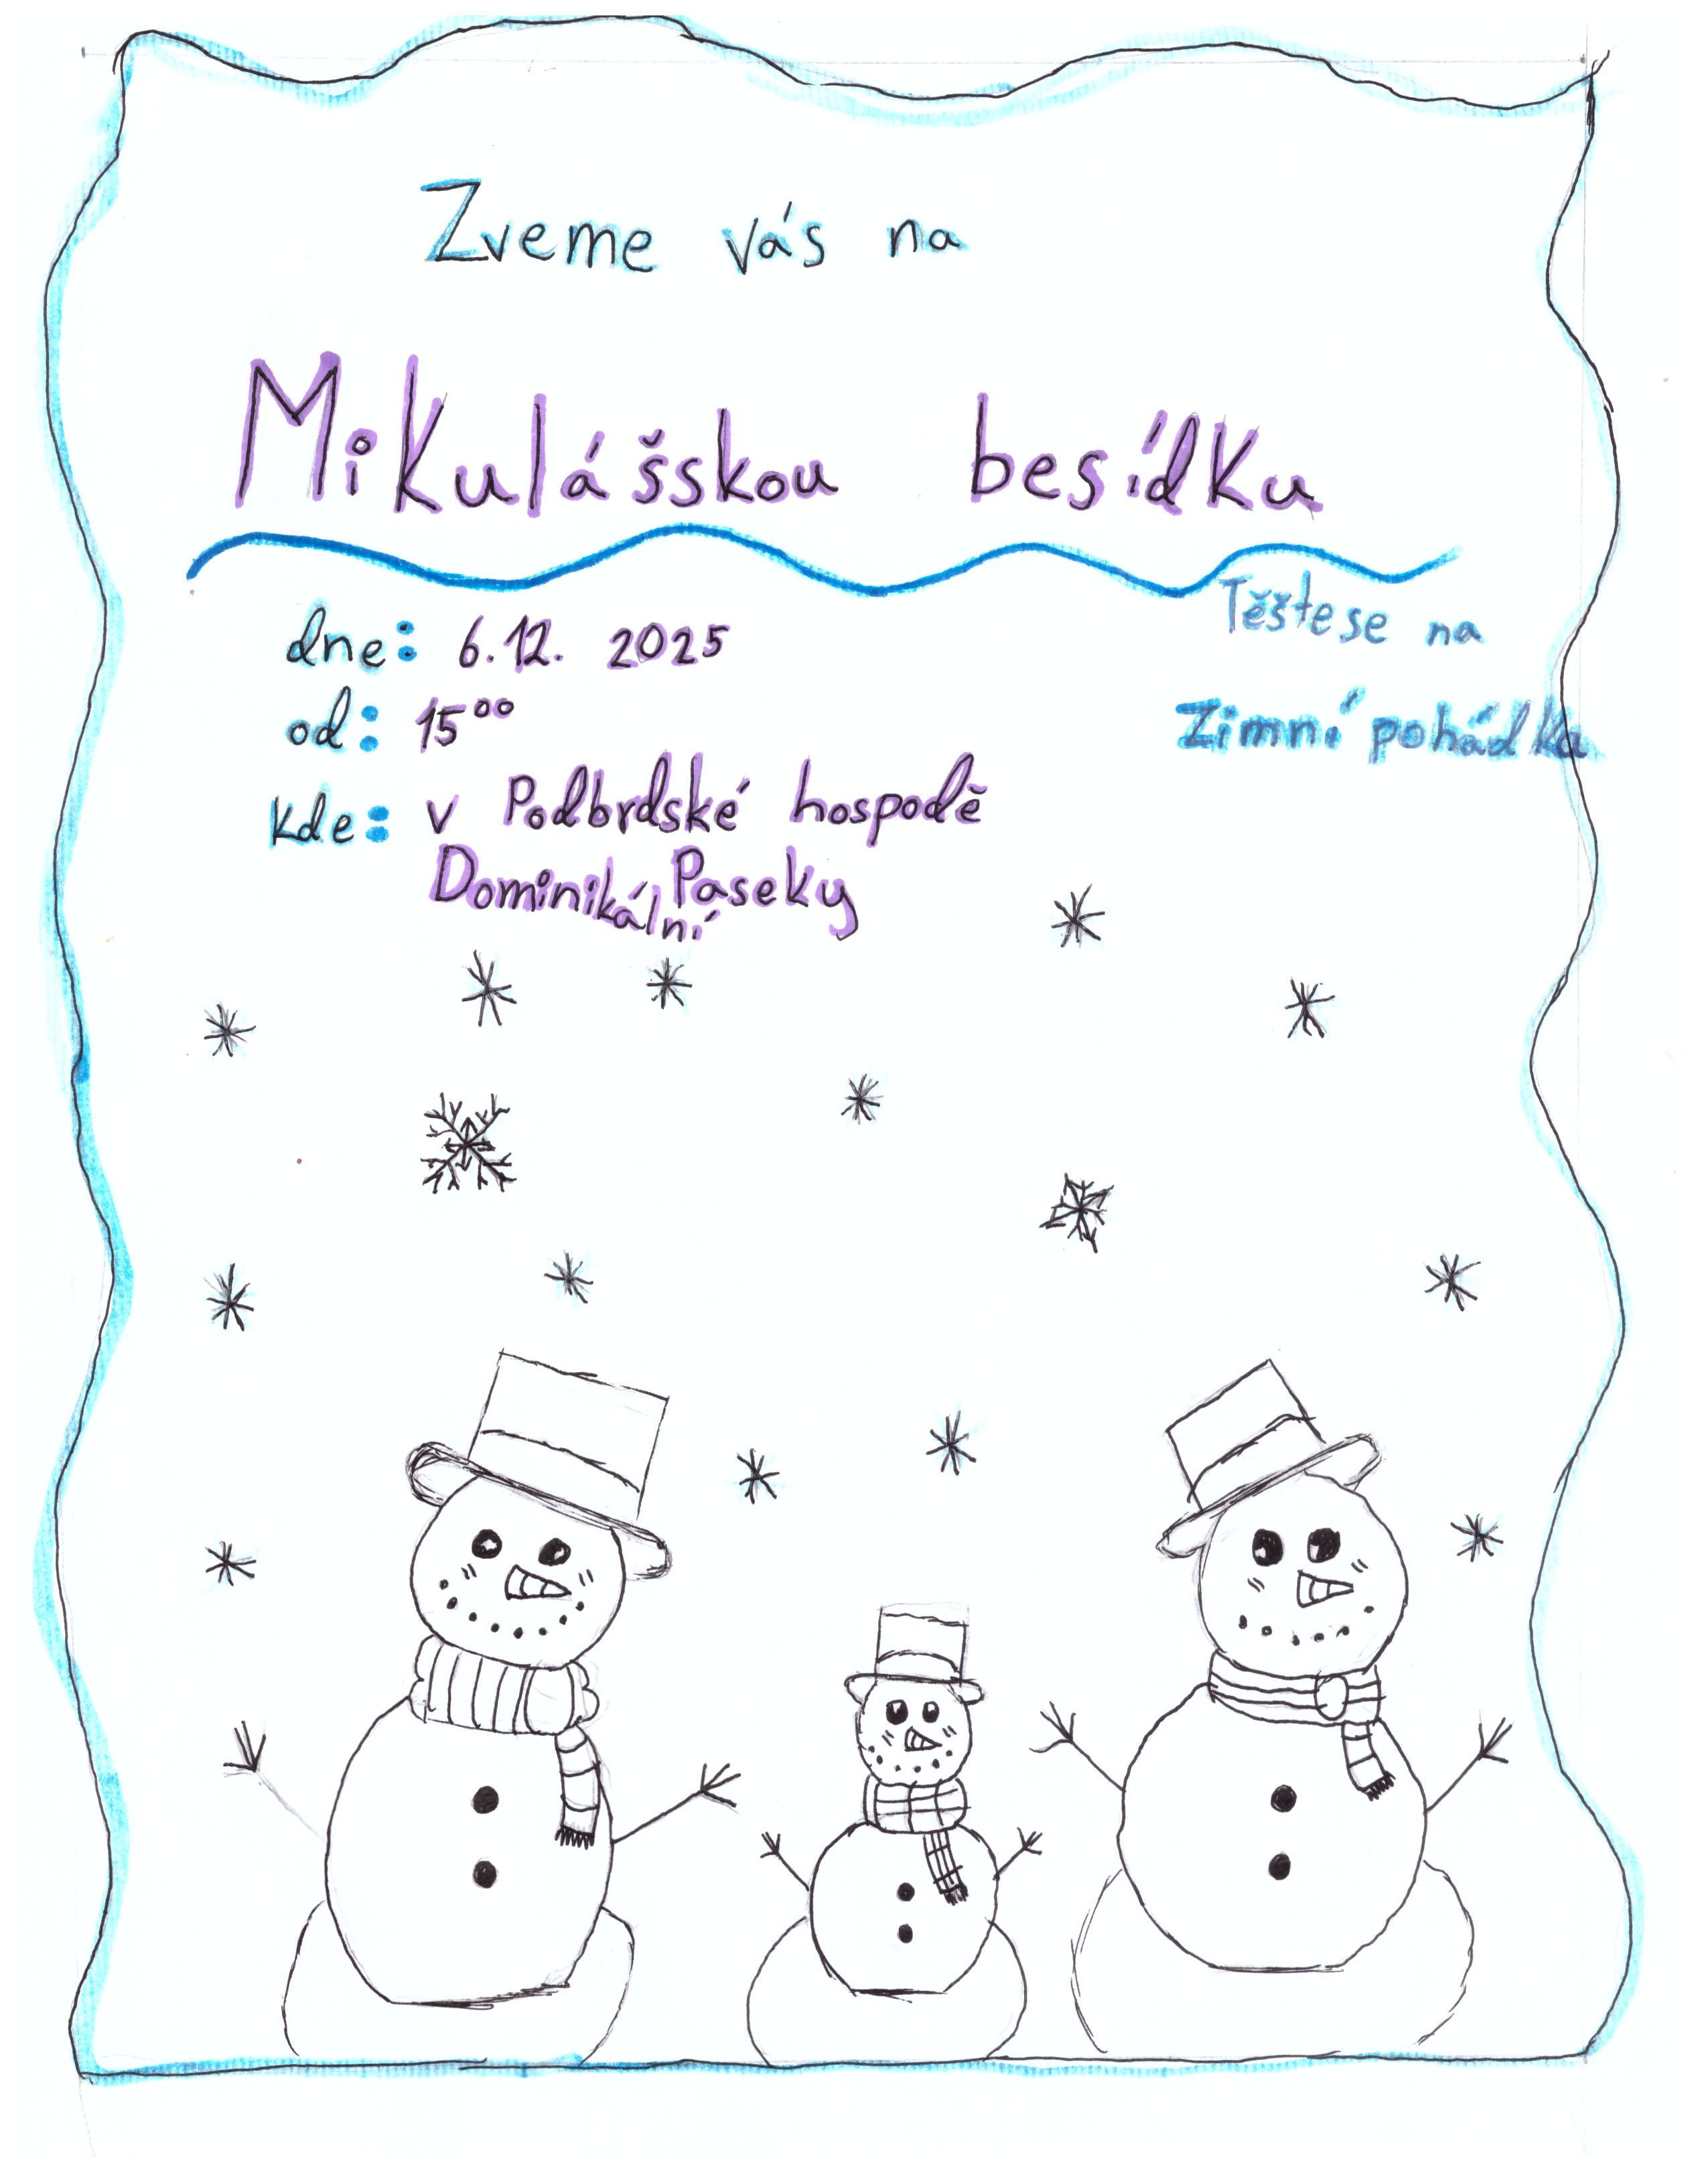 Zveme vás na
Mikulášskou besídku
dne: 6.12. 2025
od: 15⁰⁰
Kde: v Podbrdské hospodě
Dominikální Paseky
Těšte se na
Zimní pohádka